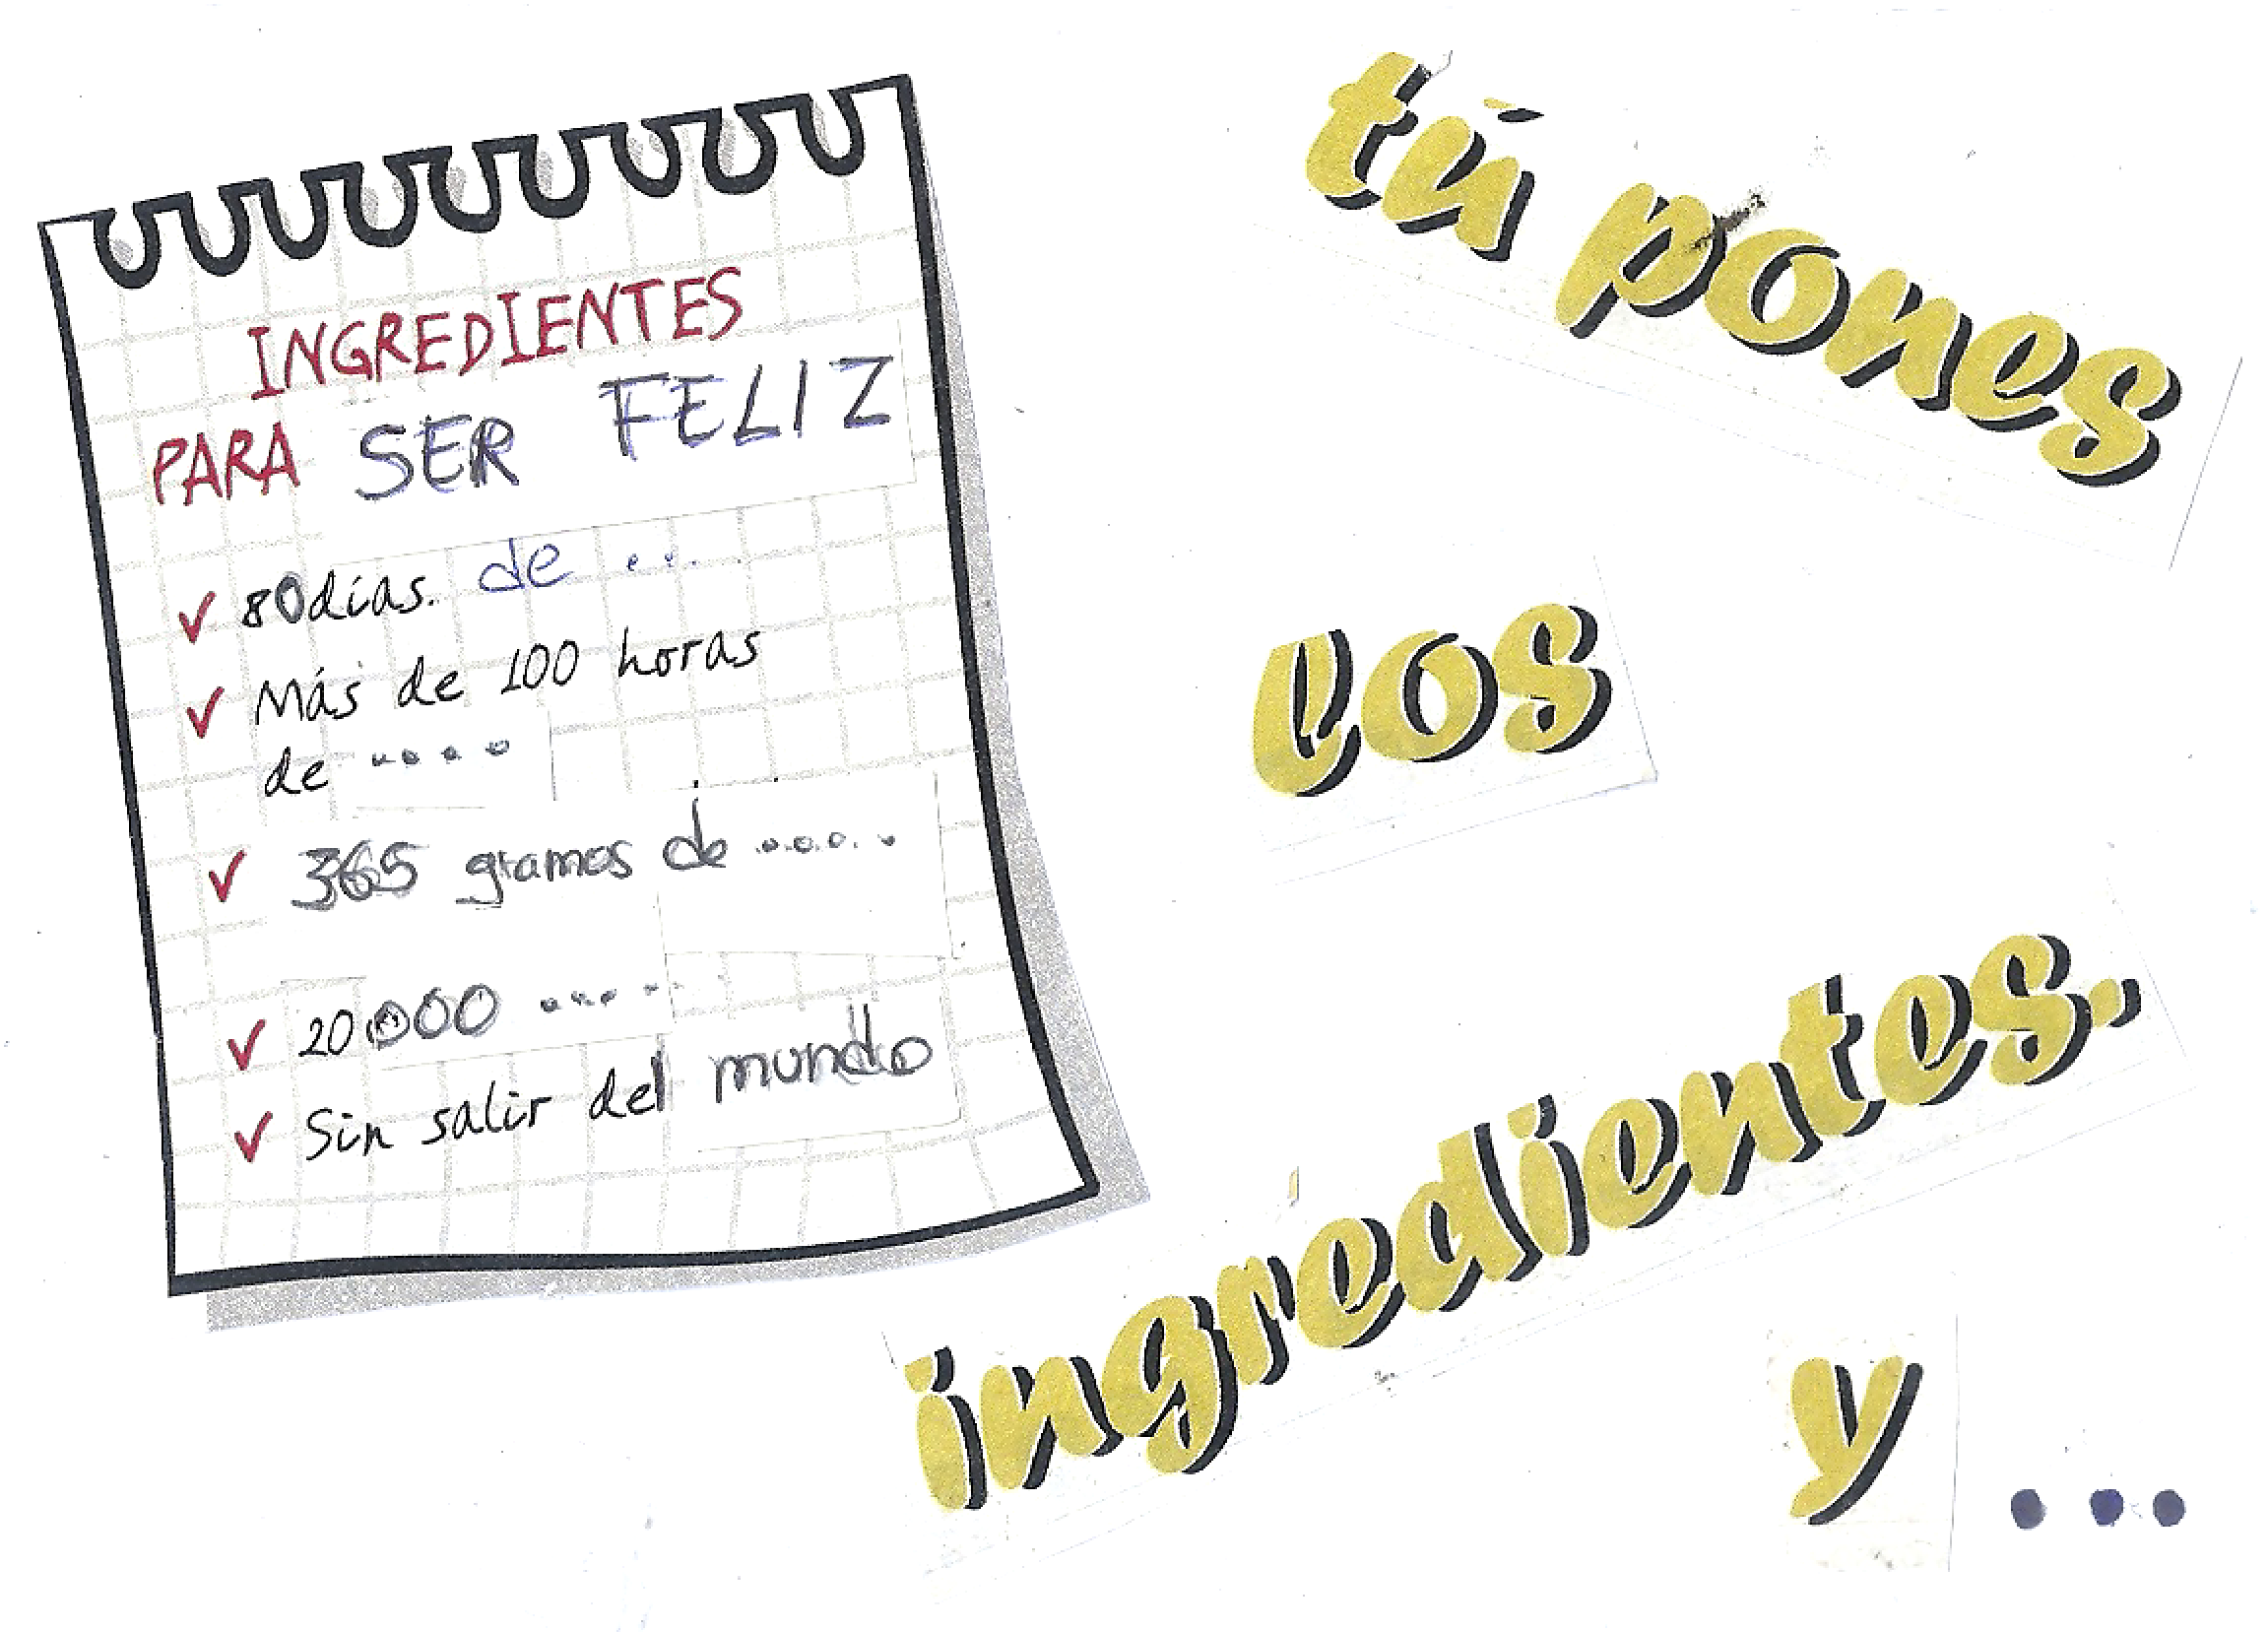 INGREDIENTES
PARA SER FELIZ
✓ 80 días. de ...
✓ Más de 100 horas
de ....
✓ 365 gramos de .....
✓ 20.000 .....
✓ Sin salir del mundo
tú pones
los
ingredientes.
y ...